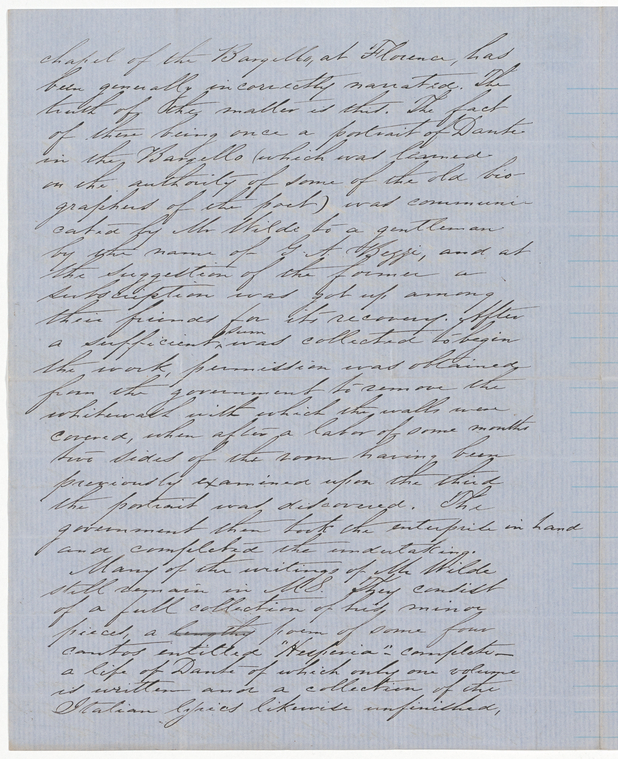 chapel of the Bargello, at Florence, has
been generally incorrectly narrated. The
truth of the matter is this. The fact
of there being once a portrait of Dante
in the Bargello (which was learned
on the authority of some of the old bio-
graphers of the poet) was communi-
cated by Mr Wilde to a gentleman
by the name of G A Bezzi, and at
the suggestion of the former a
subscription was got up among
their friends for its recovery. After
a sufficient sum was collected to begin
the work, permission was obtained
from the government to remove the
whitewash with which the walls were
covered, when after a labor of some months
two sides of the room having been
previously examined upon the third
the portrait was discovered. The
government then took the enterprise in hand
and completed the undertaking.
Many of the writings of Mr Wilde
still remain in MS. They consist
of a full collection of his minor
pieces, a lengthy poem of some four
cantos entitled "Hesperia" - complete -
a life of Dante of which only one volume
is written and a collection of the
Italian lyrics likewise unfinished,